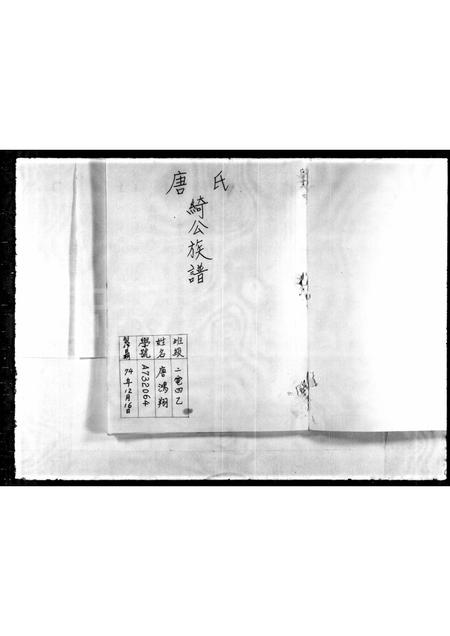 唐氏
綺公族譜
班級 二電四乙
姓名 唐鴻翔
學號 A732064
74年12月16日